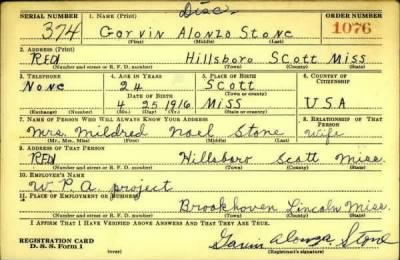 Disc.
SERIAL NUMBER 1. NAME (Print) ORDER NUMBER
374 Garvin Alonzo Stone 1076
(First) (Middle) (Last)
2. ADDRESS (Print)
RFD Hillsboro Scott Miss
(Number and street or R. F. D. number) (Town) (County) (State)
3. TELEPHONE 4. AGE IN YEARS 5. PLACE OF BIRTH 6. COUNTRY OF CITIZENSHIP
None 24 Scott
(Town or county)
DATE OF BIRTH
4 25 1916 Miss USA
(Exchange) (Number) (Mo.) (Day) (Yr.) (State or country)
7. NAME OF PERSON WHO WILL ALWAYS KNOW YOUR ADDRESS 8. RELATIONSHIP OF THAT PERSON
Mrs. Mildred Noel Stone Wife
(Mr., Mrs., Miss) (First) (Middle) (Last)
9. ADDRESS OF THAT PERSON
RFD Hillsboro Scott Miss.
(Number and street or R. F. D. number) (Town) (County) (State)
10. EMPLOYER'S NAME
W. P. A. project
11. PLACE OF EMPLOYMENT OR BUSINESS
Brookhoven Lincoln Miss.
(Number and street or R. F. D. number) (Town) (County) (State)
I AFFIRM THAT I HAVE VERIFIED ABOVE ANSWERS AND THAT THEY ARE TRUE.
REGISTRATION CARD
D. S. S. Form 1 Garvin Alonza Stone
(Registrant's signature)